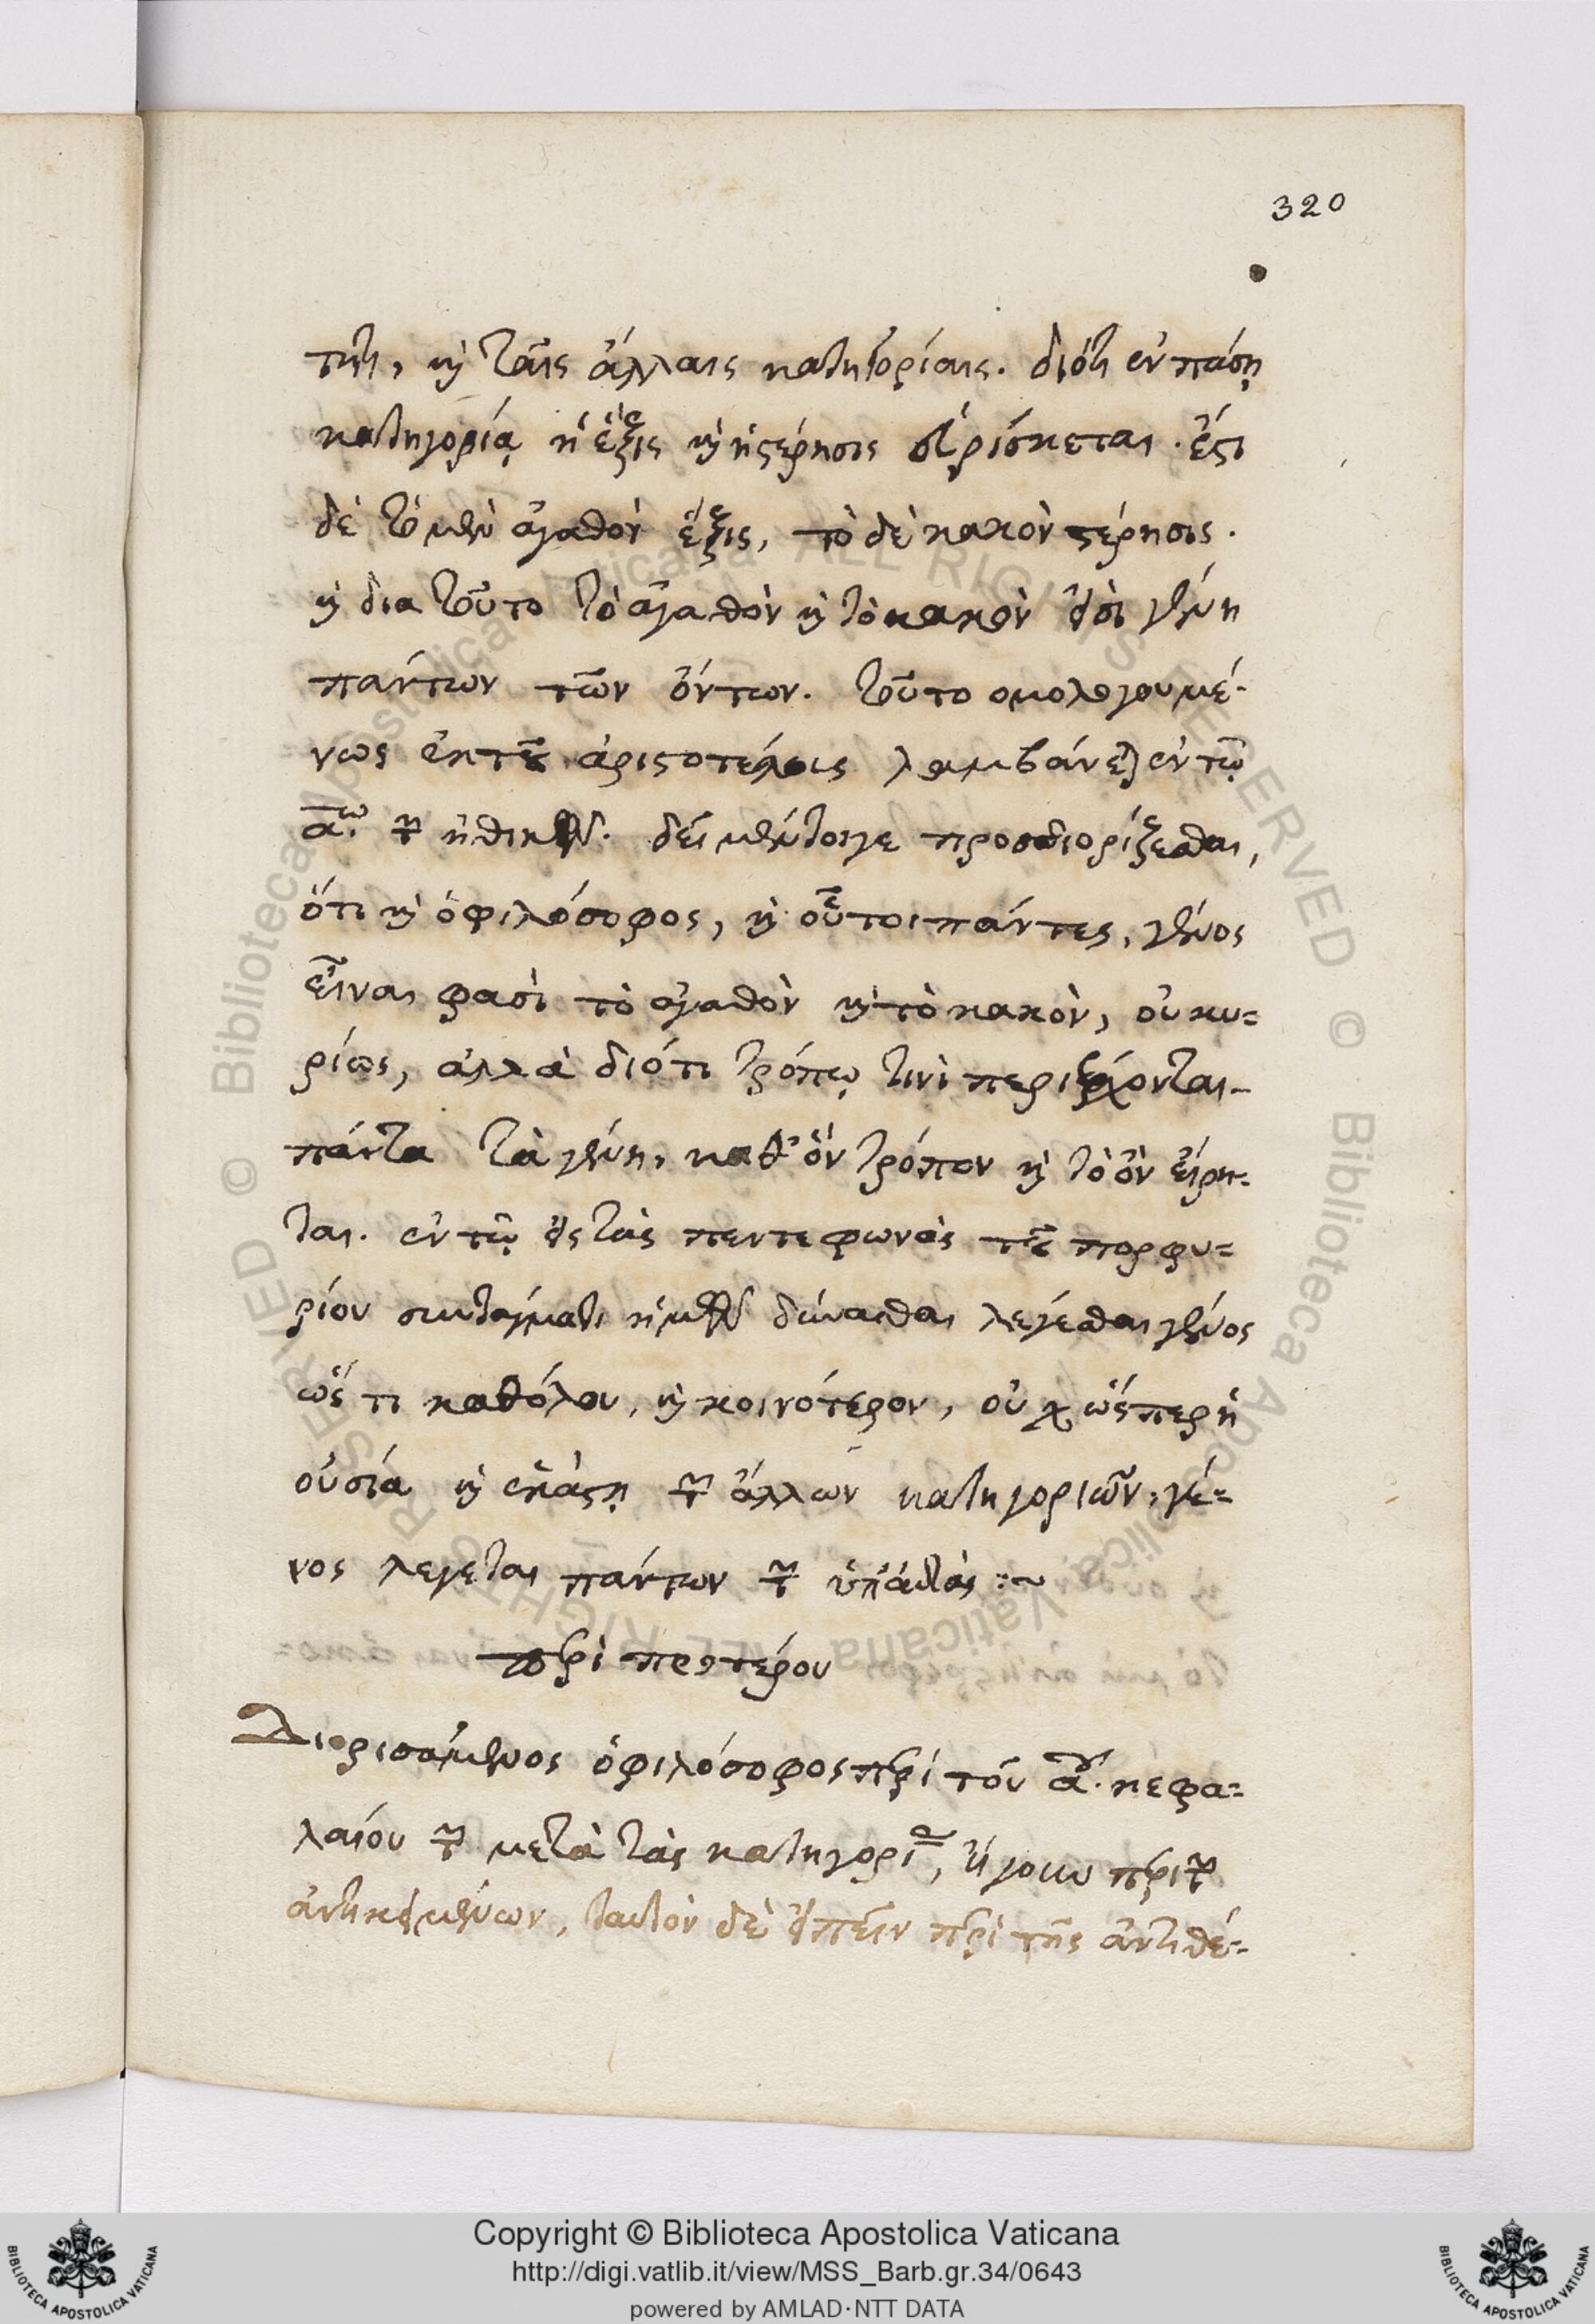 320
τητι, καὶ ταῖς ἄλλαις κατηγορίαις. διότι ἐν πάσῃ
κατηγορίᾳ ἡ ἕξις καὶ ἡ στέρησις εὑρίσκεται. ἔστι
δὲ τὸ μὲν ἀγαθὸν ἕξις, τὸ δὲ κακὸν στέρησις.
καὶ δια τοῦτο τὸ ἀγαθὸν καὶ τὸ κακὸν εἰσὶ γένη
πάντων τῶν ὄντων. τοῦτο ομολογουμέ-
νως ἐκ τοῦ ἀριστοτέλοις λαμβάνεται ἐν τῷ
αῳ. τῶν ἠθικῶν. δεῖ μέντοιγε προσδιορίζεσθαι,
ὅτι καὶ ὁ φιλόσοφος, καὶ οὗτοι πάντες, γένος
εἶναι φασὶ τὸ ἀγαθὸν καὶ τὸ κακὸν, οὐ κυ=
ρίως, ἀλλὰ διότι τρόπῳ τινὶ περιέρχονται
πάντα τὰ γένη, καθ' ὃν τρόπον καὶ τὸ ὂν εἴρη-
ται. ἐν τῷ εἰς τὰς πεντε φωνὰς τοῦ πορφυ=
ρίου συντάγματι ἡμῶν δύνασθαι λέγεσθαι γένος
ὥς τι καθόλου, καὶ κοινότερον, οὐχ ὥσπερ ἡ
οὐσία καὶ ἑκάστη τῶν ἄλλων κατηγοριῶν, γέ=
νος λεγεται πάντων τῶν ὑπ' αὐτὰς :~
περὶ προτέρου
Διορισάμενος ὁ φιλόσοφος περὶ τοῦ αου. κεφα=
λαίου τῶν μετὰ τὰς κατηγορίας, ἤγουν περὶ τῶν
ἀντικειμένων, ταυτὸν δὲ εἰπεῖν περὶ τῆς ἀντιθέ-
Copyright © Biblioteca Apostolica Vaticana
http://digi.vatlib.it/view/MSS_Barb.gr.34/0643
powered by AMLAD·NTT DATA